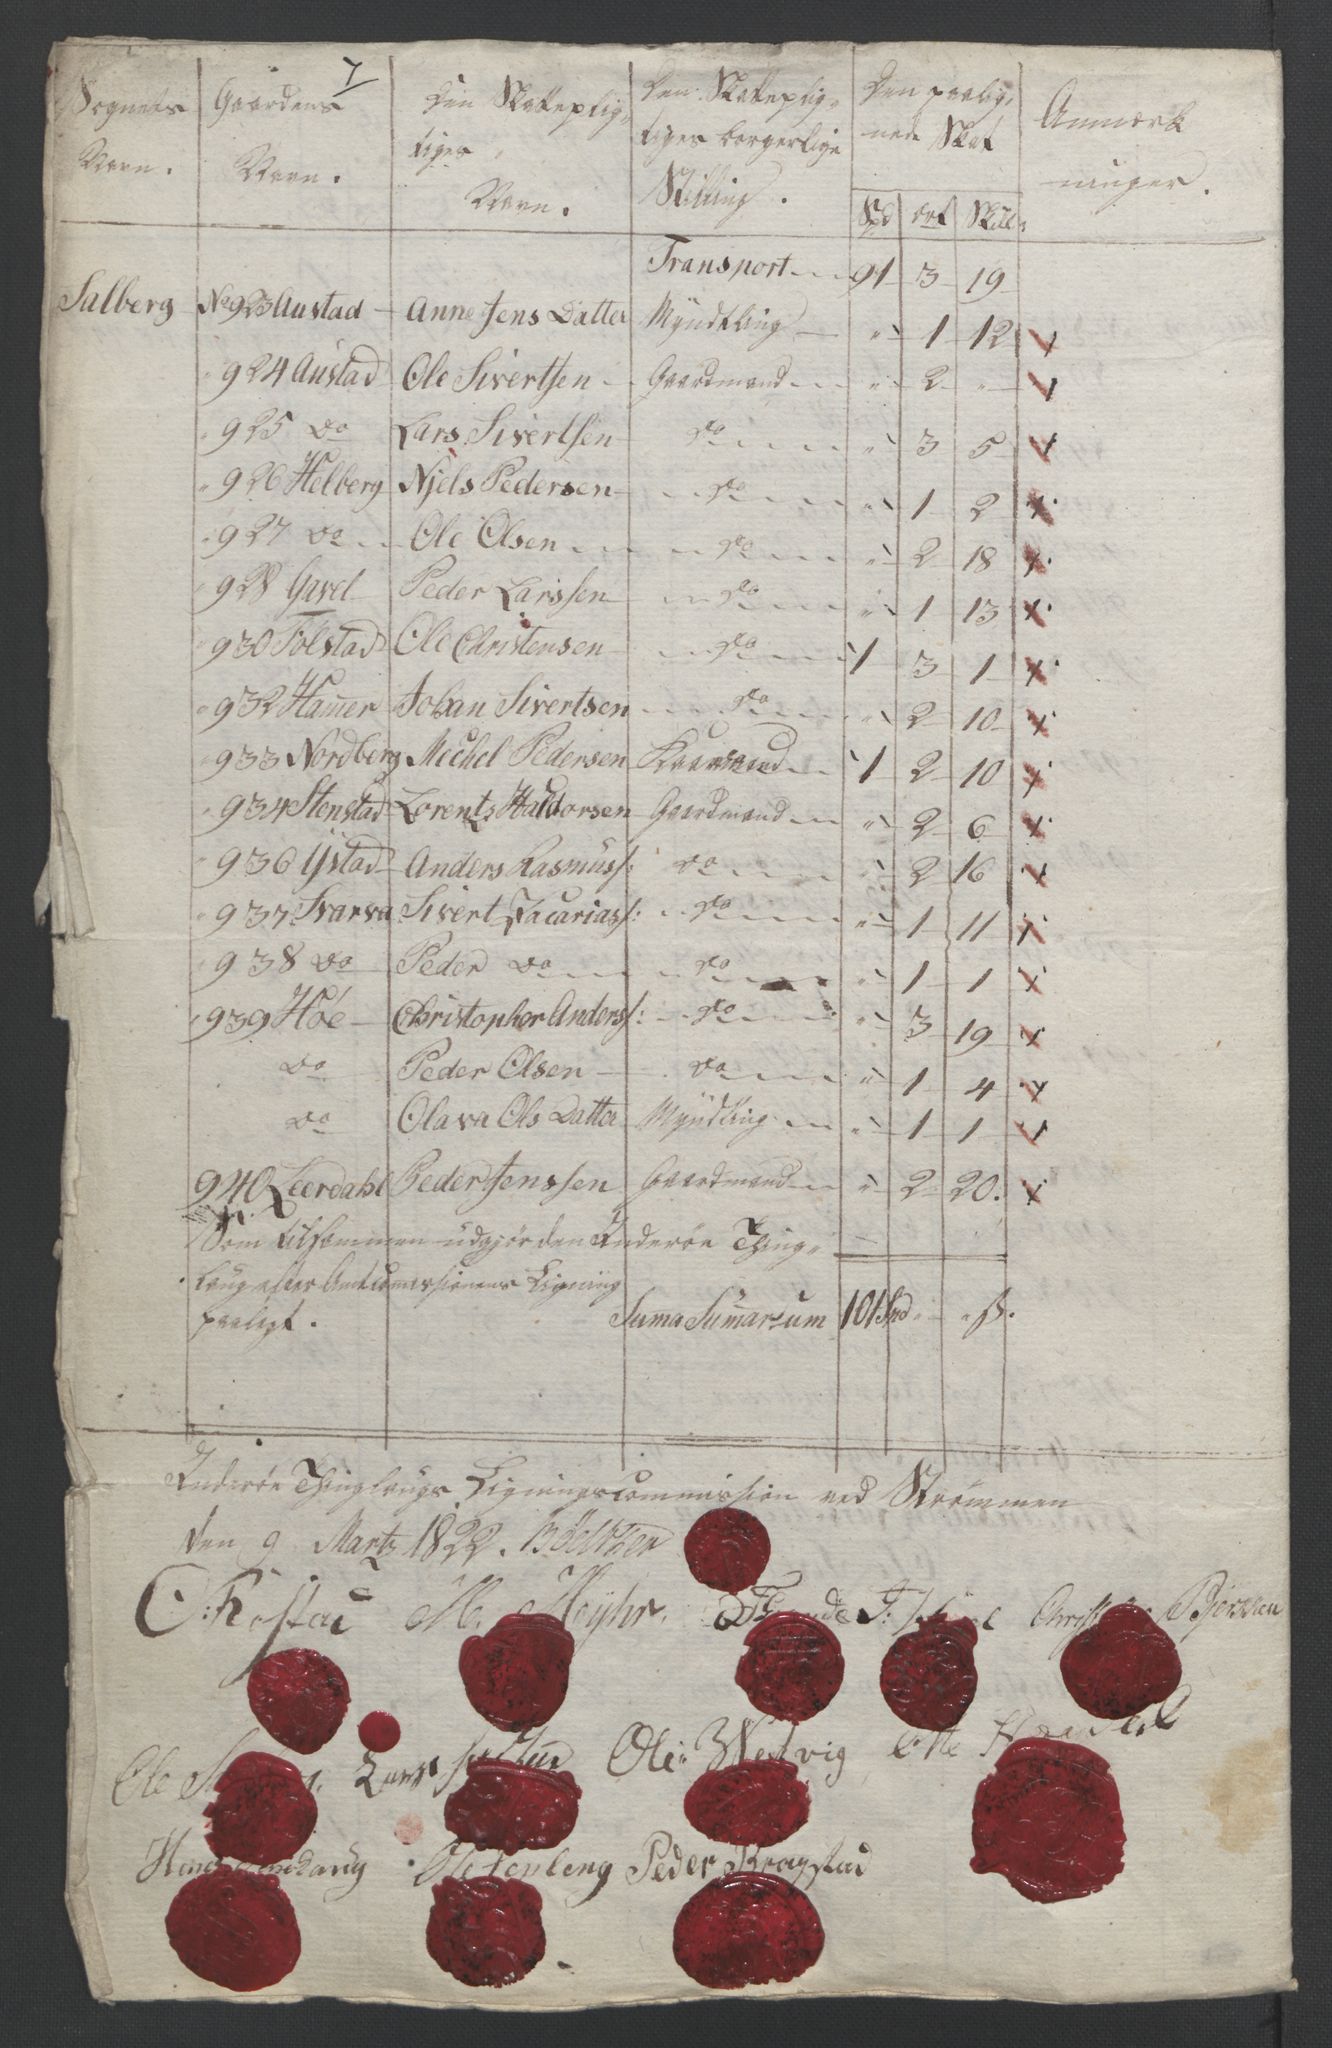 7
Sognets Navn. | Gaardens Navn. | Den Skattepligtiges Navn. | Den Skattepligtiges borgerlige Stilling. | Den paalignede Skat | Anmærkninger.
Spd | Ort | Skill:
Transport 91 3 19
Salberg No 923 Austad Anne Jens Datter Myndtling " 1 12
" 924 Austad Ole Sivertsen Gaardmand " 2 "
" 925 do Lars Sivertsen do " 3 5
" 926 Helberg Njels Pedersen do " 1 2
" 927 do Ole Olsen do " 2 18
" 928 Gavel Peder Larssen do " 1 13
" 930 Folstad Ole Christensen do 1 3 1
" 932 Ham̅er Johan Sivertsen do " 2 10
" 933 Nordberg Mechel Pedersen 1 2 10
" 934 Stenstad Lorents Haldorsen Gaardmand " 2 6
" 936 Ystad Anders Rasmuss: do " 2 16
" 937 Svarva Sivert Zacariass: do " 1 11
" 938 do Peder do do " 1 1
" 939 Høe Christopher Anderss: do " 3 19
do Peder Olsen do " 1 4
do Olava Ols Datter Myndtling " 1 1
940 Leerdahl Peder Jenssen Gaardmand " 2 20.
Som tilsammen udgjør den Inderøe Thing-
laug efter Amtcomissionens Ligning
paalagt. Suma Sumarum 101 Spd " " ß.
Inderøe Thinglaugs Ligningscommission ved Strømmen
den 9 Martz 1822.
M. Møyhr.
Ole Lars Ole Westvig
Ole Peder Kragstad